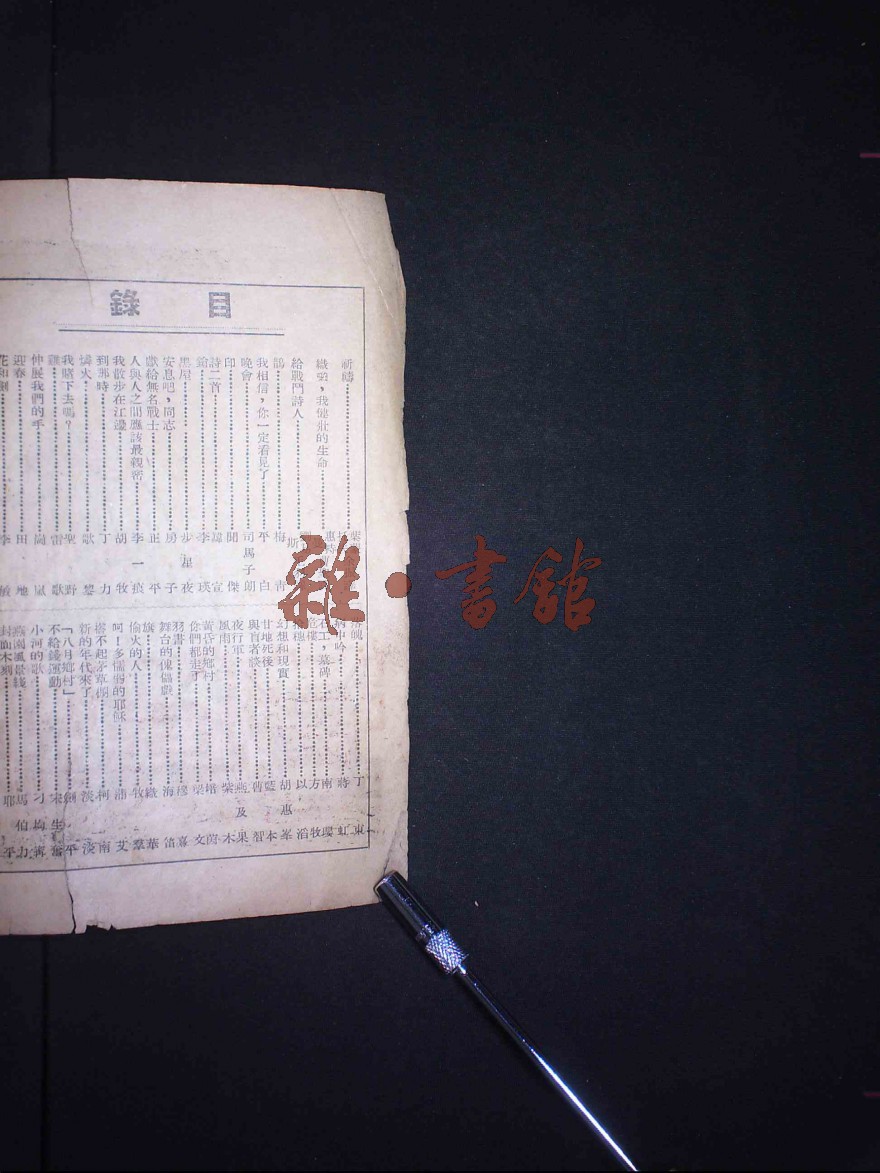 目錄
祈禱
纖弱，我健壯的生命
給戰鬥詩人
鵲 梅青
我相信，你一定看見了 平白
晚會 司馬子朗
印 聞傑
詩二首 諱宣
鎗 李瑛
黑屋 步星夜
安息吧，同志 房子
獻給無名戰士 正平
人與人之間應該最親密 李一痕
我散步在江邊 胡牧
到那時 丁力
燐火 歌黎
我瞎下去嗎？ 聖野
雞 雷歌
伸展我們的手 崗嵐
迎春 田地
花和劍 李敏
丁東
病中吟 蔣虹
石工，墓碑 南瓔
方牧
拾穗 以滔
幻想和現實 胡惠峯
甘地死後 藍本
與盲者談 曾智
夜行軍 燕及果
風雨 柴木
黃昏的鄉村 塔茵
你們都走了 葉文
羽書 穆嘉
舞台的傀儡戲 海笛
旗 織華
偷火的人 牧羣
呵！多懦弱的耶穌 艾
搭不起茅草棚 柯南
新的年代來了 淡淡
「八月鄉村」 劍平
不給錢運動 宋生奮
小河的歌 刁均寗
燕園風景綫 馬伯力
封面木刻 耶平
雜·書館